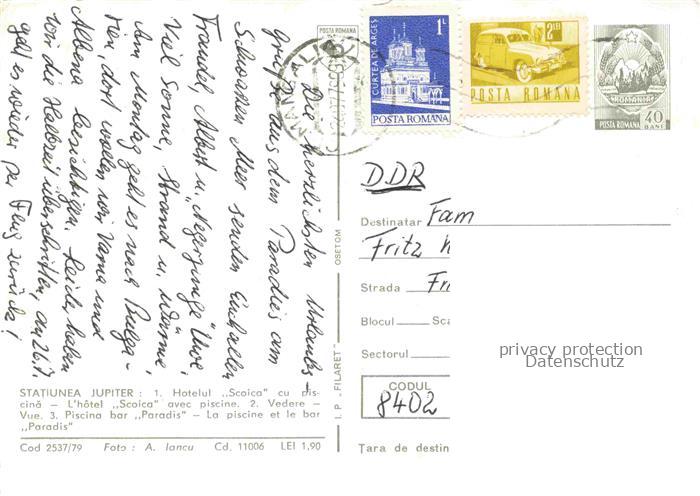 Die herzlichsten Urlaubs-
grüße aus dem Paradies am
Schwarzen Meer senden Euch allen
Traudel, Albert u. „Negerjunge" Uwe.
Viel Sonne, Strand u. Wärme!
Am Montag geht es nach Bulga-
rien, dort wollen wir Varna und
Albena besichtigen. Leider haben
wir die Halbzeit überschritten, am 26.7.
geht es wieder per Flug zurück!
STAȚIUNEA JUPITER : 1. Hotelul „Scoica" cu pis-
cină — L'hôtel „Scoica" avec piscine. 2. Vedere —
Vue. 3. Piscina bar „Paradis" — La piscine et le bar
„Paradis"
Cod 2537/79 Foto : A. Iancu Cd. 11006 LEI 1,90
I. P. „FILARET" OSETOM
POSTA ROMANA
MANGALIA
CURTEA DE ARGEȘ
1L
POSTA ROMANA
2LEI
POSTA ROMANA
ROMANIA
POSTA ROMANA 40 BANI
DDR
Destinatar Fam
Fritz
Strada
Blocul Sca
Sectorul
CODUL
8402
Țara de destin
privacy protection
Datenschutz